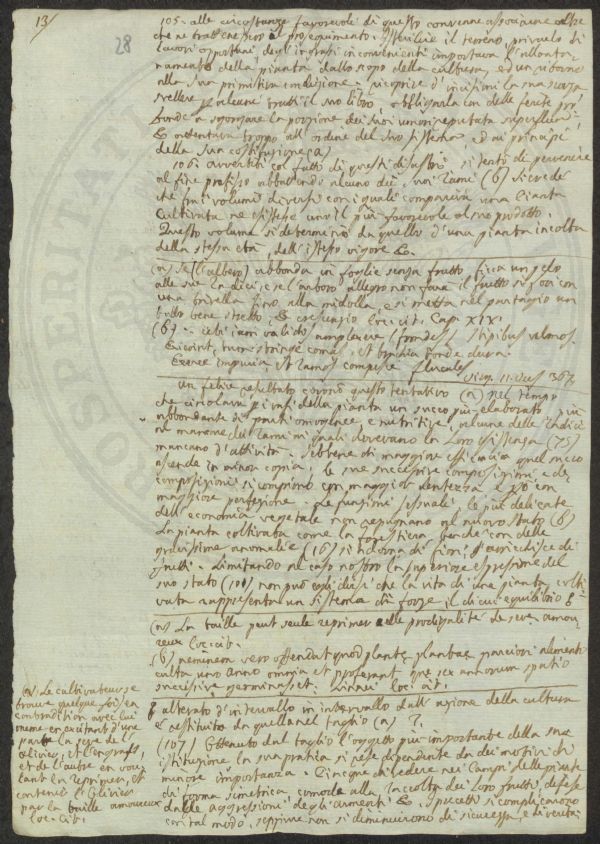 13
28
105. alle circostanze favorevoli di questo convenne associarne altre
che ne trattenessero il proseguimento. Isterilire il terreno, privarlo di
lavori opportuni, degli ingrassi inconvenienti importava l'allonta-
namento della pianta dallo scopo della cultura, ed un ritorno
alla sua primitiva condizione. ricoprire d'incisioni la sua scorza
svellere alcune il suo libro, obbligarla con delle ferite pro-
fonde a sgorgare la porzione dei suoi umori reputata superflua
&c. attentava troppo all'ordine del suo sistema, ed ai principi
della sua costituzione (a)
106. avvertiti col fatto di questi si tentò di pervenire
al fine prefisso abbattendo alcuno dei suoi rami (b) si crede
che fra i volumi diversi con i quali compariva una pianta
cultivata ne esistesse uno il più favorevole al suo prodotto.
Questo volume si determinò da quello d'una pianta incolta
della stessa età, dell'istesso vigore &c.
(a) Se (l'albero) abbonda in foglie senza frutto, ficca un
alle sue radici, e se l'arboro allegro non fa il frutto si fori con
una trivella fino alla midolla, e si metta nel pertugio un
bene stretto, &c. Crescenzio loc: cit. Cap. XIX.
(b) ubi iam validis amplexae stipibus ulmos
Exierint, tum stringe comas,
Exerce imperia et ramos compesce fluentes
Virg. 11. vers 367
Un felice resultato coronò questo tentativo (a) nel tempo
che circolava per i vasi della pianta un succo più elaborato più
abbondante di parti e nutritive, alcune delle radici
dei rami ai quali dovevano la loro esistenza (75)
mancano d'attività. Sebbene di maggiore efficacia quel succo
ascende in minor copia, le sue successive composizioni e de-
composizioni si compiono con maggior lentezza e con
maggiore perfezione. Le funzioni sessuali le più delicate
dell'economia vegetale non repugnano al nuovo stato (b)
La pianta coltivata come la forestiera benche con delle
gravissime anomalie (16) si adorna di fiori, si arricchisce di
frutti. Limitando al caso nostro la superiore espressione del
suo stato (100) non può egli dirsi che la vita di una pianta colti-
vata rappresenta un sistema di forze il di cui equilibrio
(a) La taille peut seule reprimer cette prodigalité de seve amou-
reux loc: cit.
(b) neminem vero offendat quod plantae, plantas parciori alimento
culta uno anno omnia et proferant quae sex annorum spatio
successive germinasset. Linnei loc: cit.
(a) Le cultivateur se
trouve quelque fois en
contradiction avec lui
meme en excitant d'une
part la force de l'
Olivier, et l'engrais,
et de l'autre en vou-
lant la reprimer, et
contenir l'Olivier
par la taille amoureux
loc. cit.
alterato d'intervallo in intervallo dall'azione della cultura
è restituito da quella del taglio (a) ?
(107) Ottenuto dal taglio l'oggetto più importante della sua
istituzione la sua pratica si rese dipendente da dei motivi di
minore importanza. Piacque di vedere nei Campi delle piante
di forma simetrica comode alla raccolta dei loro frutti, difese
dalle aggressioni degli armenti &c. I precetti si complicarono
con tal modo, seppure non si diminuirono di sicurezza, e di verità